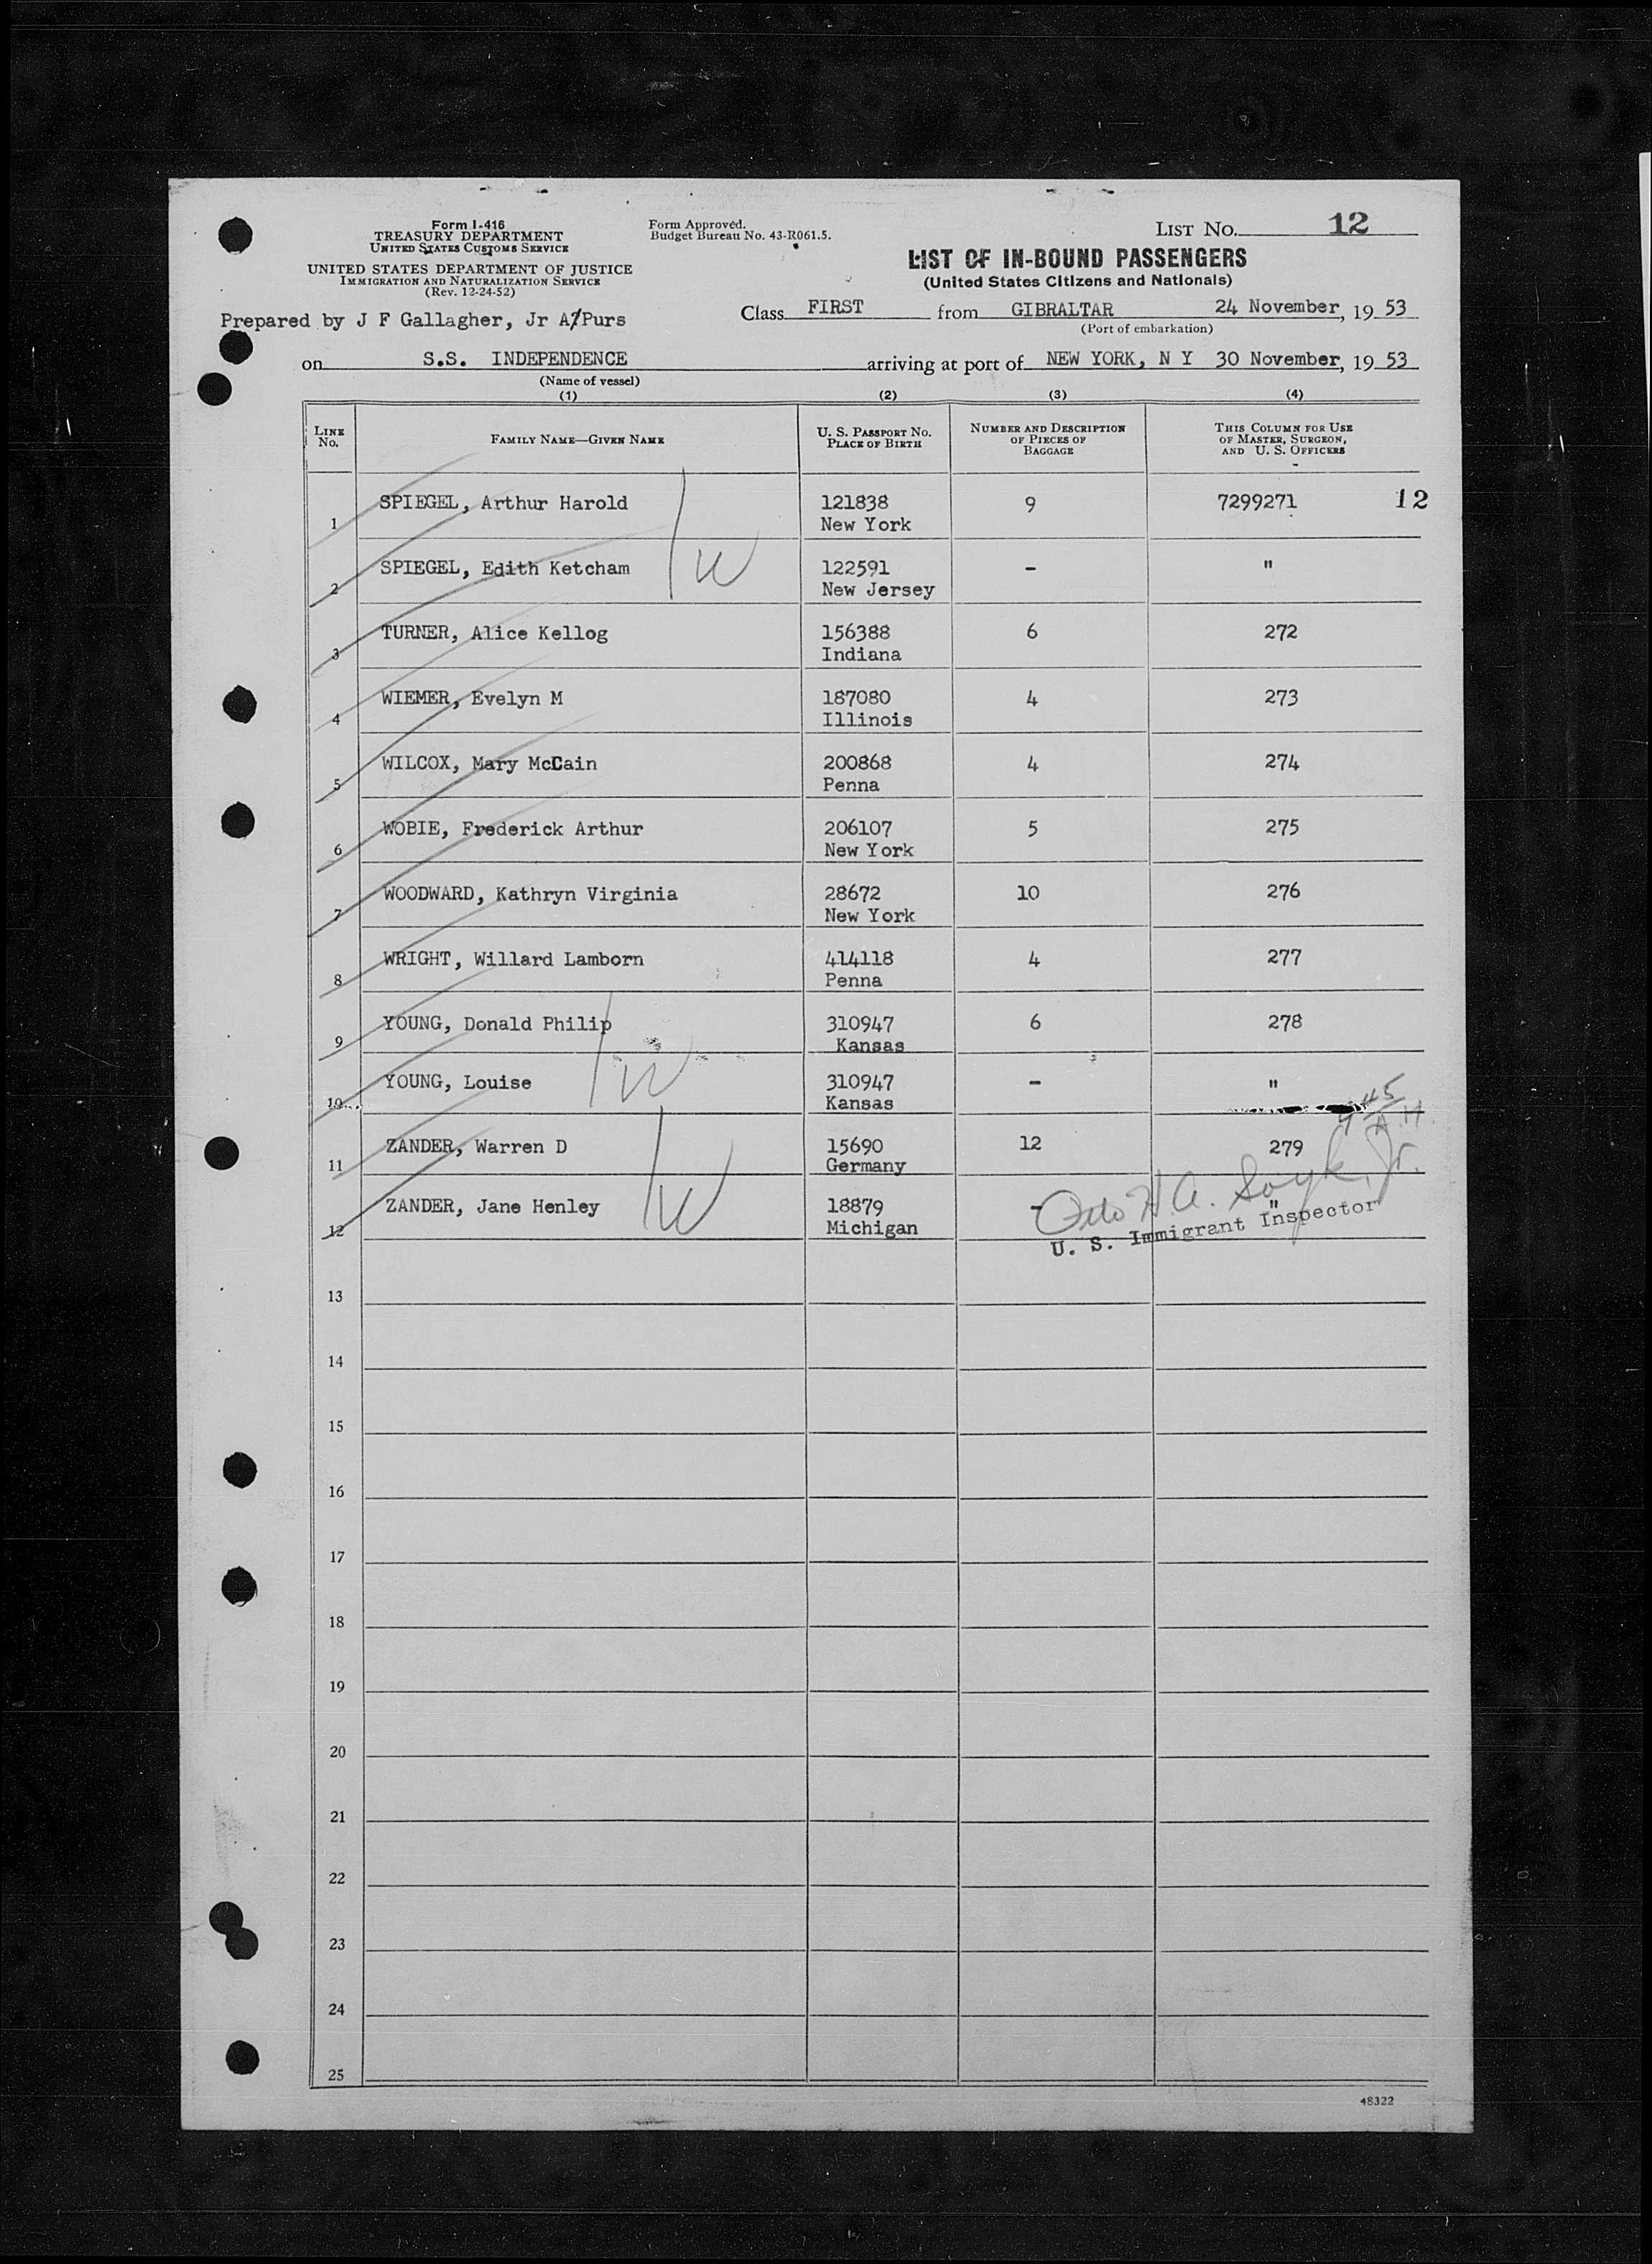 Form I-416
TREASURY DEPARTMENT
UNITED STATES CUSTOMS SERVICE
UNITED STATES DEPARTMENT OF JUSTICE
IMMIGRATION AND NATURALIZATION SERVICE
(Rev. 12-24-52)
Form Approved.
Budget Bureau No. 43-R061.5.
LIST No. 12
LIST OF IN-BOUND PASSENGERS
(United States Citizens and Nationals)
Prepared by J F Gallagher, Jr A/Purs
Class FIRST from GIBRALTAR 24 November, 19 53
(Port of embarkation)
on S.S. INDEPENDENCE arriving at port of NEW YORK, N Y 30 November, 19 53
(Name of vessel)
(1) (2) (3) (4)
LINE No. FAMILY NAME—GIVEN NAME U. S. PASSPORT No. PLACE OF BIRTH NUMBER AND DESCRIPTION OF PIECES OF BAGGAGE THIS COLUMN FOR USE OF MASTER, SURGEON, AND U. S. OFFICERS
1 SPIEGEL, Arthur Harold 121838 9 7299271 12
New York
2 SPIEGEL, Edith Ketcham W 122591 - "
New Jersey
3 TURNER, Alice Kellog 156388 6 272
Indiana
4 WIEMER, Evelyn M 187080 4 273
Illinois
5 WILCOX, Mary McCain 200868 4 274
Penna
6 WOBIE, Frederick Arthur 206107 5 275
New York
7 WOODWARD, Kathryn Virginia 28672 10 276
New York
8 WRIGHT, Willard Lamborn 414118 4 277
Penna
9 YOUNG, Donald Philip 310947 6 278
Kansas
10 YOUNG, Louise W 310947 - "
Kansas
11 ZANDER, Warren D 15690 12 279
Germany
12 ZANDER, Jane Henley W 18879 - "
Michigan
Otto H.A. Jr.
U. S. Immigrant Inspector
13
14
15
16
17
18
19
20
21
22
23
24
25
48322